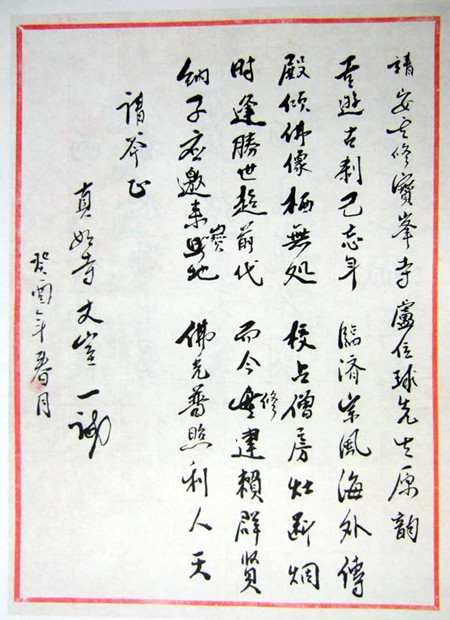 請安其修寶峯寺盧位球先生原韵
吾遊古刹已忘年 臨済宗風海外傳
殿傾佛像栖無処 校占僧房灶断烟
时逢勝世超前代 而今修建賴群賢
衲子应邀来寶地 佛光普照利人天
请斧正
真如寺丈室一诚
癸酉年春月